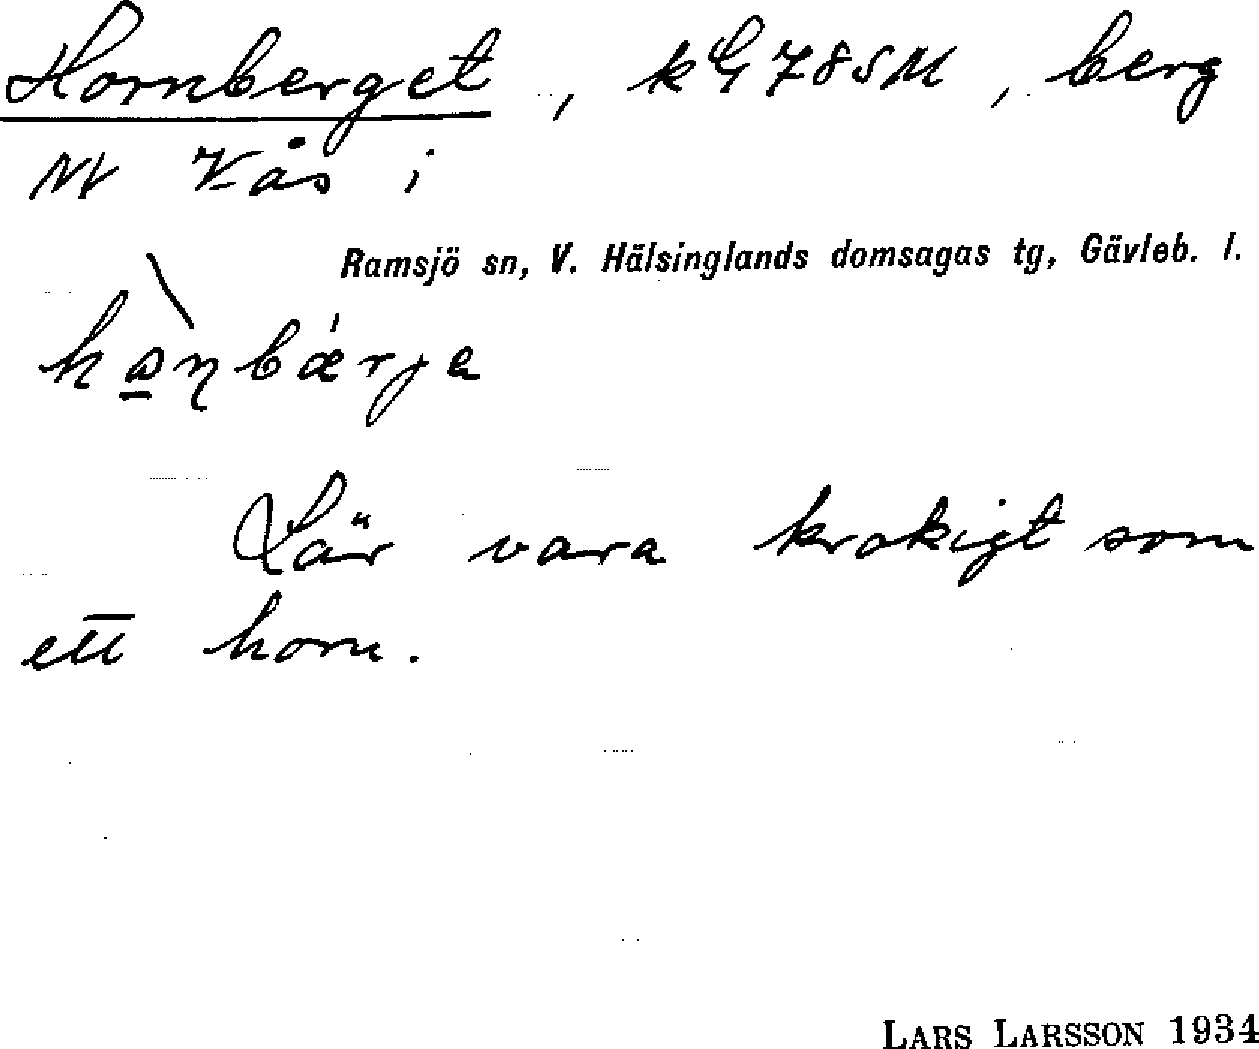 Hornberget, kG785M, berg
M Kås i
Ramsjö sn, V. Hälsinglands domsagas tg, Gävleb. l.
Lär vara krokigt som
ett horn.
LARS LARSSON 1934